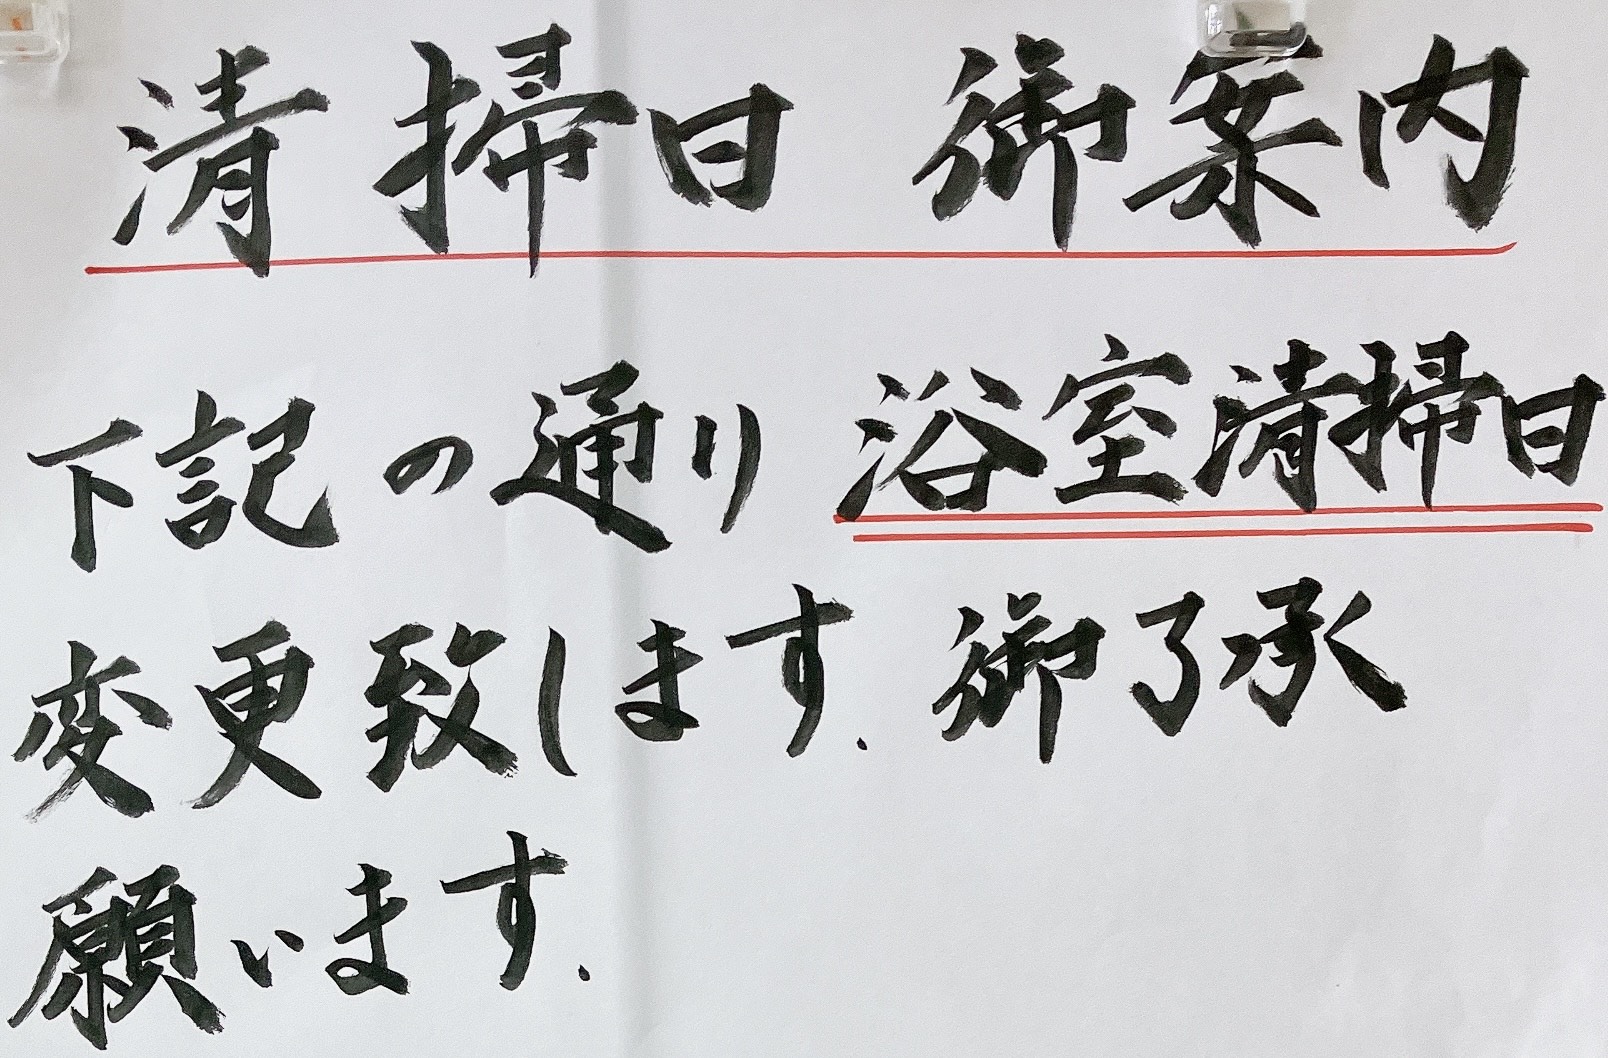 清掃日 御案内
下記の通り浴室清掃日
変更致します.御了承
願います.